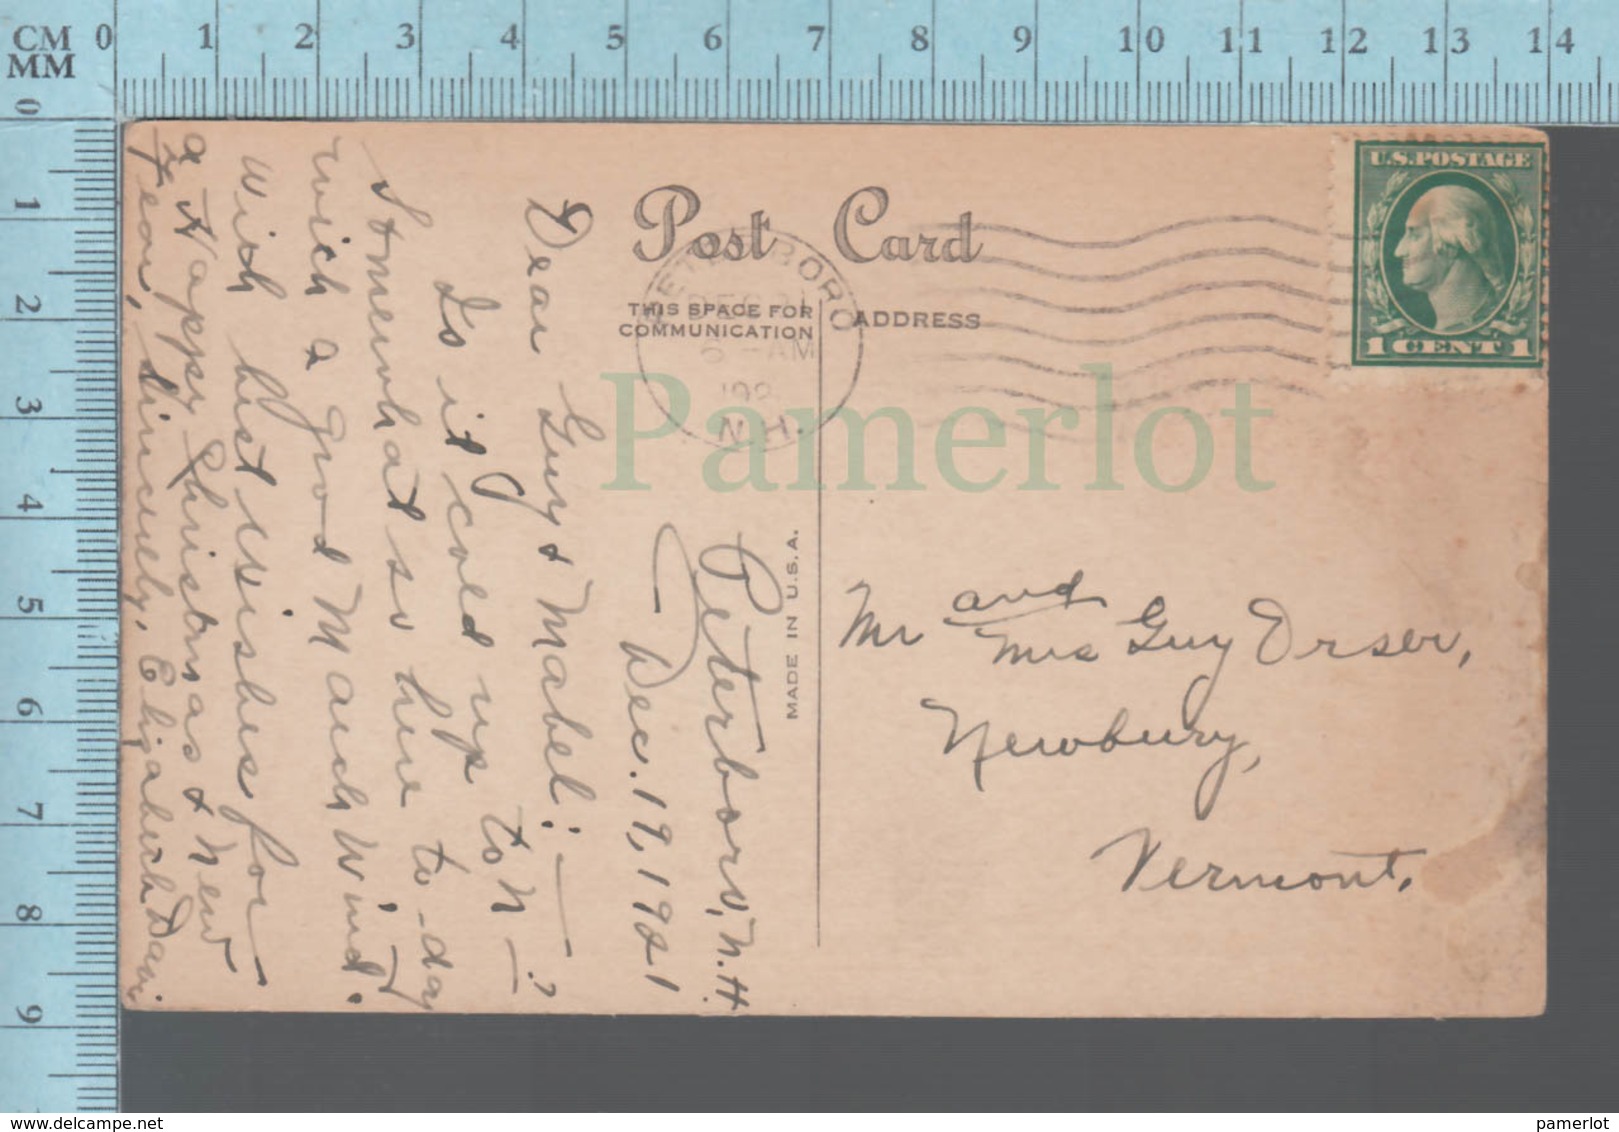 CM 0 1 2 3 4 5 6 7 8 9 10 11 12 13 14
MM
0
1
2
3
4
5
6
7
8
9
Post Card
THIS SPACE FOR
COMMUNICATION
ADDRESS
MADE IN U.S.A.
PETERBORO
DEC 21
6 - AM
192
N.H.
U.S. POSTAGE
1 CENT 1
Pamerlot
Peterboro, N.H.
- Dec. 19, 1921
Dear Guy & Mabel: -
Is it cold up to N - ?
Somewhat so here to-day
with a good March wind.
With best wishes for
a Happy Christmas & New
Year, Sincerely, Elizabeth
Mr and Mrs Guy Orser,
Newbury,
Vermont.
www.delcampe.net
pamerlot